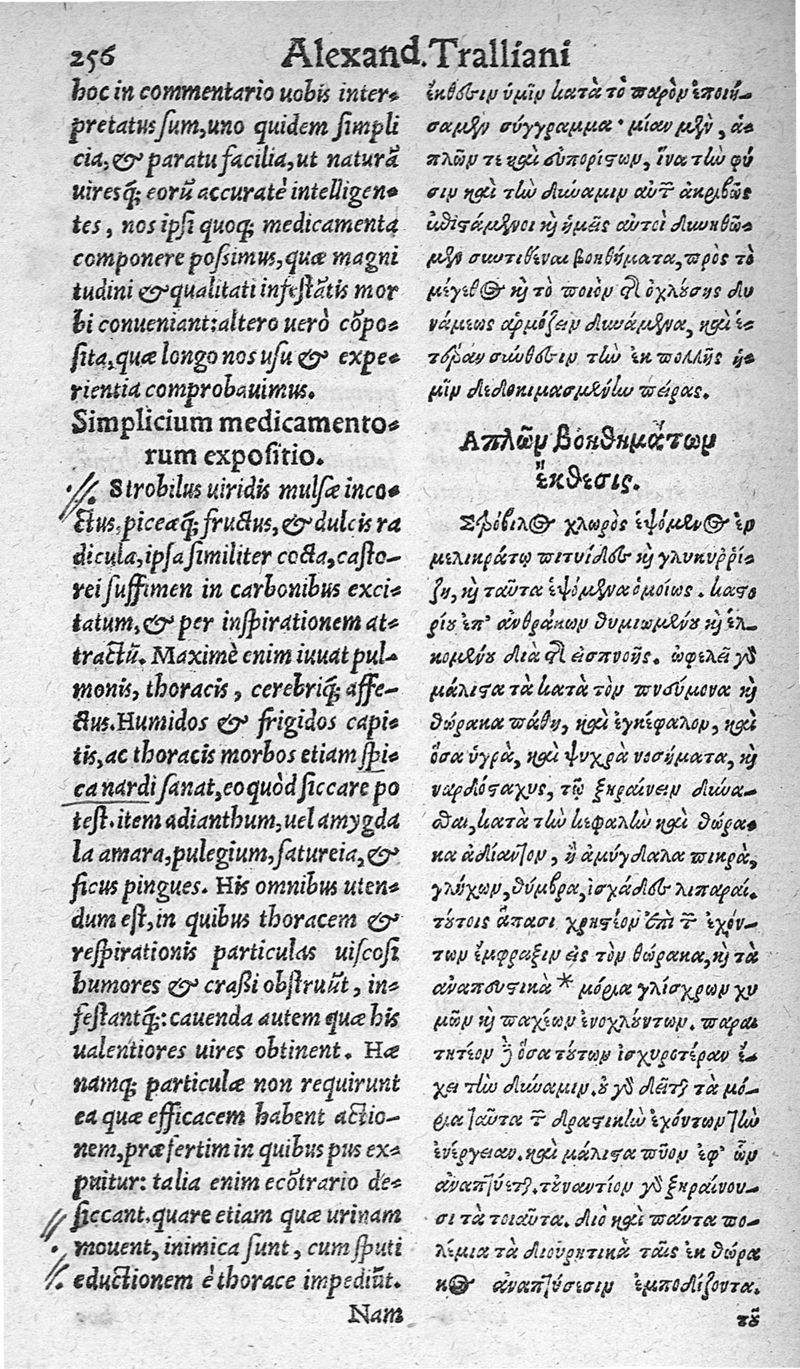 256 Alexand. Tralliani
hoc in commentario uobis inter-
pretatus sum, uno quidem simpli
cia, & paratu facilia, ut naturā
uiresq; eorū accuratè intelligen-
tes, nos ipsi quoq; medicamenta
componere possimus, quæ magni
tudini & qualitati infestātis mor
bi conueniant: altero uerò cōpo-
sita, quæ longo nos usu & expe-
rientia comprobauimus.
Simplicium medicamento-
rum expositio.
Strobilus uiridis mulsæ inco-
ctus, piceæq; fructus, & dulcis ra
dicula, ipsa similiter cocta, casto-
rei suffimen in carbonibus exci-
tatum, & per inspirationem at-
tractū. Maximè enim iuuat pul-
monis, thoracis, cerebriq; affe-
ctus. Humidos & frigidos capi-
tis, ac thoracis morbos etiam spi-
ca nardi sanat, eo quòd siccare po
test. item adianthum, uel amygda
la amara, pulegium, satureia, &
ficus pingues. His omnibus uten-
dum est, in quibus thoracem &
respirationis particulas uiscosi
humores & crassi obstruūt, in-
festantq;: cauenda autem quæ his
ualentiores uires obtinent. Hæ
namq; particulæ non requirunt
ea quæ efficacem habent actio-
nem, præsertim in quibus pus ex-
puitur: talia enim ecōtrario de-
siccant. quare etiam quæ urinam
mouent, inimica sunt, cum sputi
eductionem è thorace impediūt.
Nam
ἔκθεσιν ὑμῖν κατὰ τὸ παρὸν ἐποιη-
σάμην σύγγραμμα· μίαν μὲν, ἁ-
πλῶν τε καὶ εὐπορίστων, ἵνα τὴν φύ
σιν καὶ τὴν δύναμιν αὐτῶν ἀκριβῶς
ἐπιστάμενοι καὶ ἡμεῖς αὐτοὶ δυνηθῶ-
μεν συντιθέναι βοηθήματα, πρὸς τὸ
μέγεθος καὶ τὸ ποιὸν τῆς ὀχλούσης δυ
νάμεως ἁρμόζειν δυνάμενα, καὶ ἑ-
τέραν σύνθεσιν τὴν ἐκ πολλῆς ἡ-
μῖν δεδοκιμασμένην πείρας.
Ἁπλῶν βοηθημάτων
ἔκθεσις.
Στρόβιλος χλωρὸς ἑψόμενος ἐν
μελικράτῳ πιτυίδες καὶ γλυκυῤῥί-
ζη, καὶ ταῦτα ἑψόμενα ὁμοίως. καστο
ρίου ἐπ' ἀνθράκων θυμιωμένου καὶ ἑλ-
κομένου διὰ τῆς εἰσπνοῆς. ὠφελεῖ γὰρ
μάλιστα τὰ κατὰ τὸν πνεύμονα καὶ
θώρακα πάθη, καὶ ἐγκέφαλον, καὶ
ὅσα ὑγρὰ, καὶ ψυχρὰ νοσήματα, καὶ
ναρδόσταχυς, τῷ ξηραίνειν δύνα-
σθαι, κατὰ τὴν κεφαλὴν καὶ θώρα-
κα ἀδίαντον, ἢ ἀμύγδαλα πικρὰ,
γλήχων, θύμβρα, ἰσχάδες λιπαραί.
τούτοις ἅπασι χρηστέον ἐπὶ τῶν ἐχόν-
των ἔμφραξιν εἰς τὸν θώρακα, καὶ τὰ
ἀναπνευστικὰ * μόρια γλίσχρων χυ
μῶν καὶ παχέων ἐνοχλούντων. παραι
τητέον δὲ ὅσα τούτων ἰσχυροτέραν ἔ-
χει τὴν δύναμιν. οὐ γὰρ δεῖται τὰ μό-
ρια ταῦτα τῶν δραστικὴν ἐχόντων τὴν
ἐνέργειαν. καὶ μάλιστα πῦον ἐφ' ὧν
ἀναπτύεται. τοὐναντίον γὰρ ξηραίνου-
σι τὰ τοιαῦτα. διὸ καὶ πάντα πο-
λέμια τὰ διουρητικὰ ταῖς ἐκ θώρα
κος ἀναπτύσεσιν ἐμποδίζοντα.
τοῦ